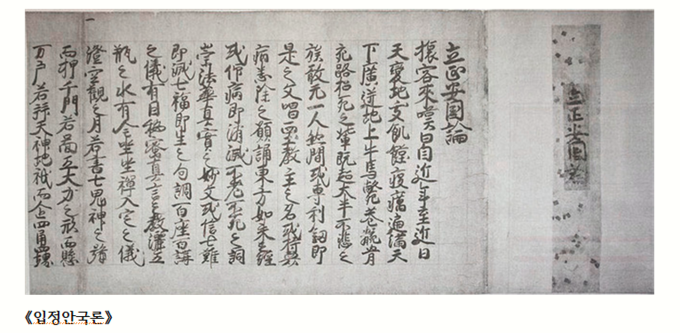 立正安国論
立正安国論
旅客來嘆曰自近年至近日
天變地夭飢饉疫癘遍満天
下廣迸地上牛馬斃巷骸骨
充路招死之輩既超大半不悲之
族敢无一人然間或専利釼即
是之文唱西土教主之名或持衆
病悉除之願誦東方如来之經
或仰病即消滅不老不死之詞
崇法華真實之妙文或信七難
即滅七福即生之句調百座百講
之儀有因秘密真言之教灑五
瓶之水有全坐禪入定之儀
澄空觀之月若書七鬼神之號
而押千門若圖五大力之形而懸
万戸若拝天神地祇而企四角四堺
一
《입정안국론》